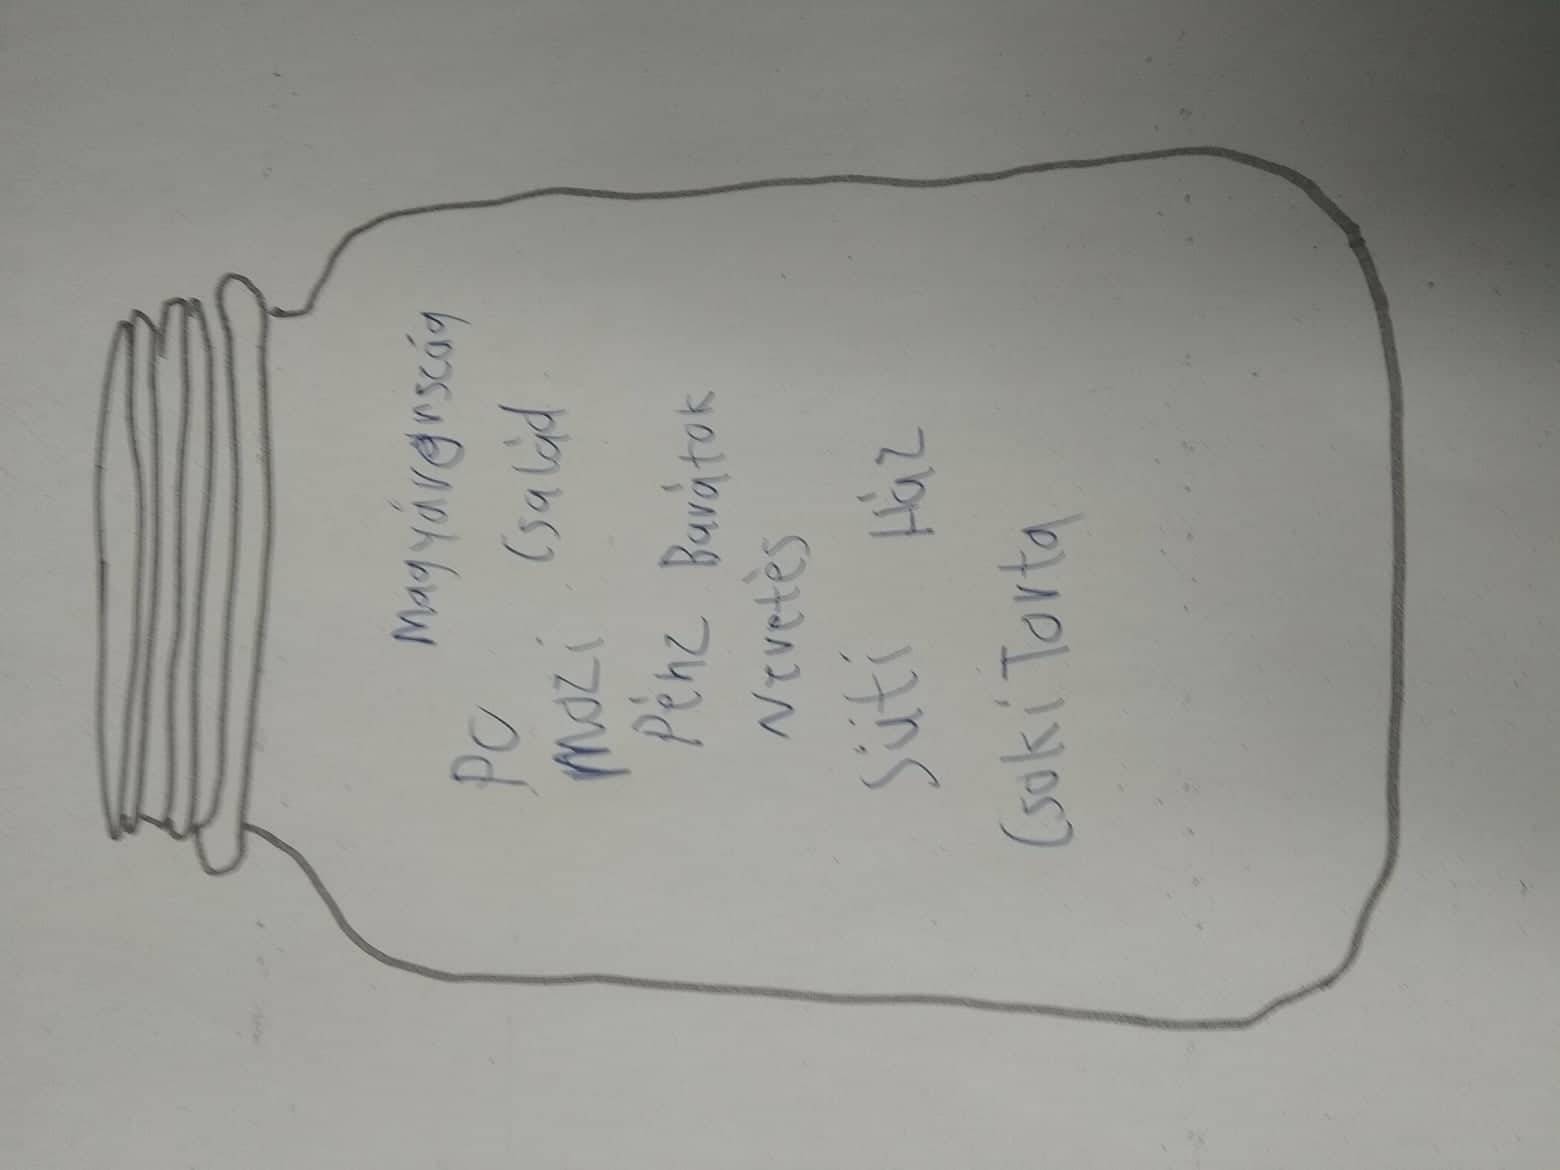 Magyarország
PC Család
Mozi
Pénz Barátok
Nevetés
Süti Ház
Csoki Torta